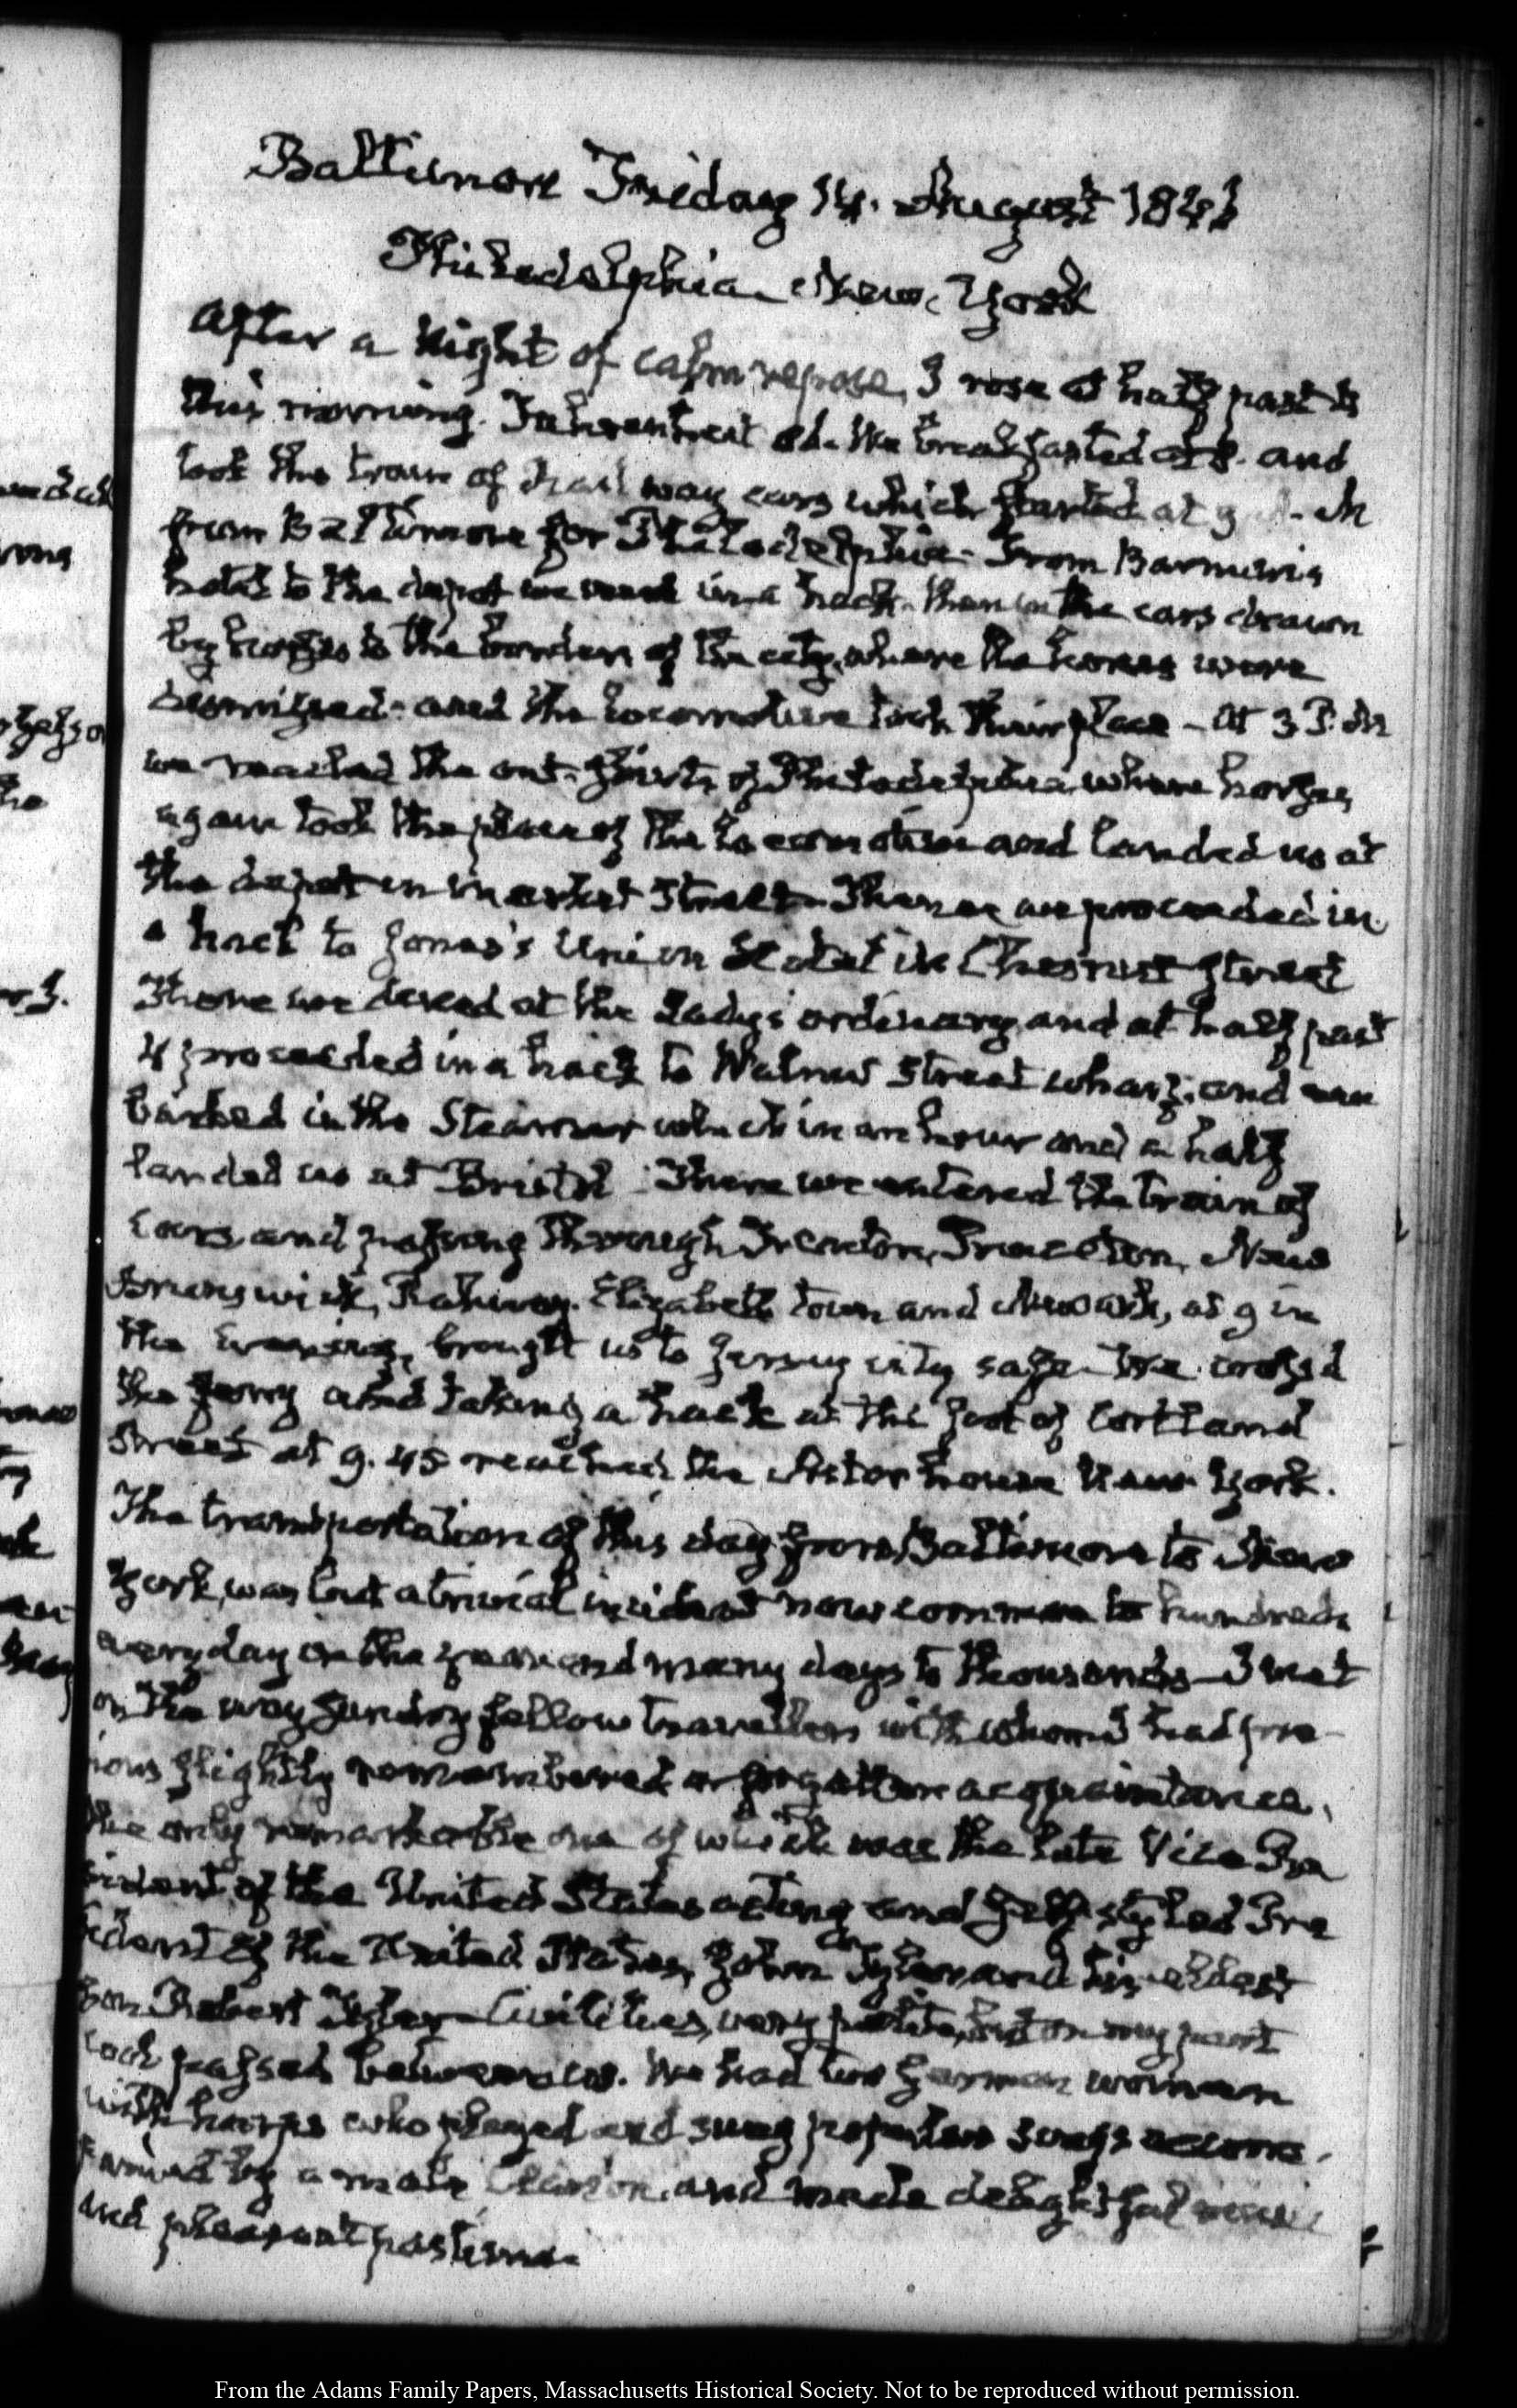 Baltimore Friday 14. August 184
Philadelphia New-York
After a Night of calm repose, I rose at half past
this morning. We breakfasted at 8. and
took the train of Rail way cars which started at 9
from Baltimore for Philadelphia. From Barnum's
hotel to the depot we went in a hack. then in the cars drawn
by horses to the borders of the city, where the horses were
dismissed and the locomotive took their place - At 3 P.M
we reached the out-skirts of Philadelphia, where horses
again took the place of the locomotive and landed us at
the depot in market Street. Thence we proceeded in
a hack to Jones's Union Hotel in Chesnut Street
There we dined at the Lady's ordinary, and at half past
4 proceeded in a hack to Walnut Street wharf, and em
barked in the Steamer which in an hour and a half
landed us at Bristol. There we entered the train of
cars and passing through Trenton, Princeton, New
Brunswick, Rahway, Elizabeth town and Newark, at 9 in
the evening, brought us to Jersey city safe. We crossed
the ferry and taking a hack at the foot of Cortland
Street at 9.45 reached the Astor house New York.
The transportation of this day from Baltimore to New
York, was but a trivial incident now common to hundreds
every day in the year and many days to thousands - I met
on the way sundry fellow travellers with whom I had pre-
vious slightly remembered or forgotten acquaintance,
the only remarkable one of which was the late Vice Pre
sident of the United States acting and self styled Pre
sident of the United States, John Tyler and his eldest
Son Robert Tyler - Civilities, very polite, but on my part
cool passed between us. We had two German women
with harps who played and sung popular songs accom-
panied by a male and made delightful music
and pleasant pastime.
From the Adams Family Papers, Massachusetts Historical Society. Not to be reproduced without permission.